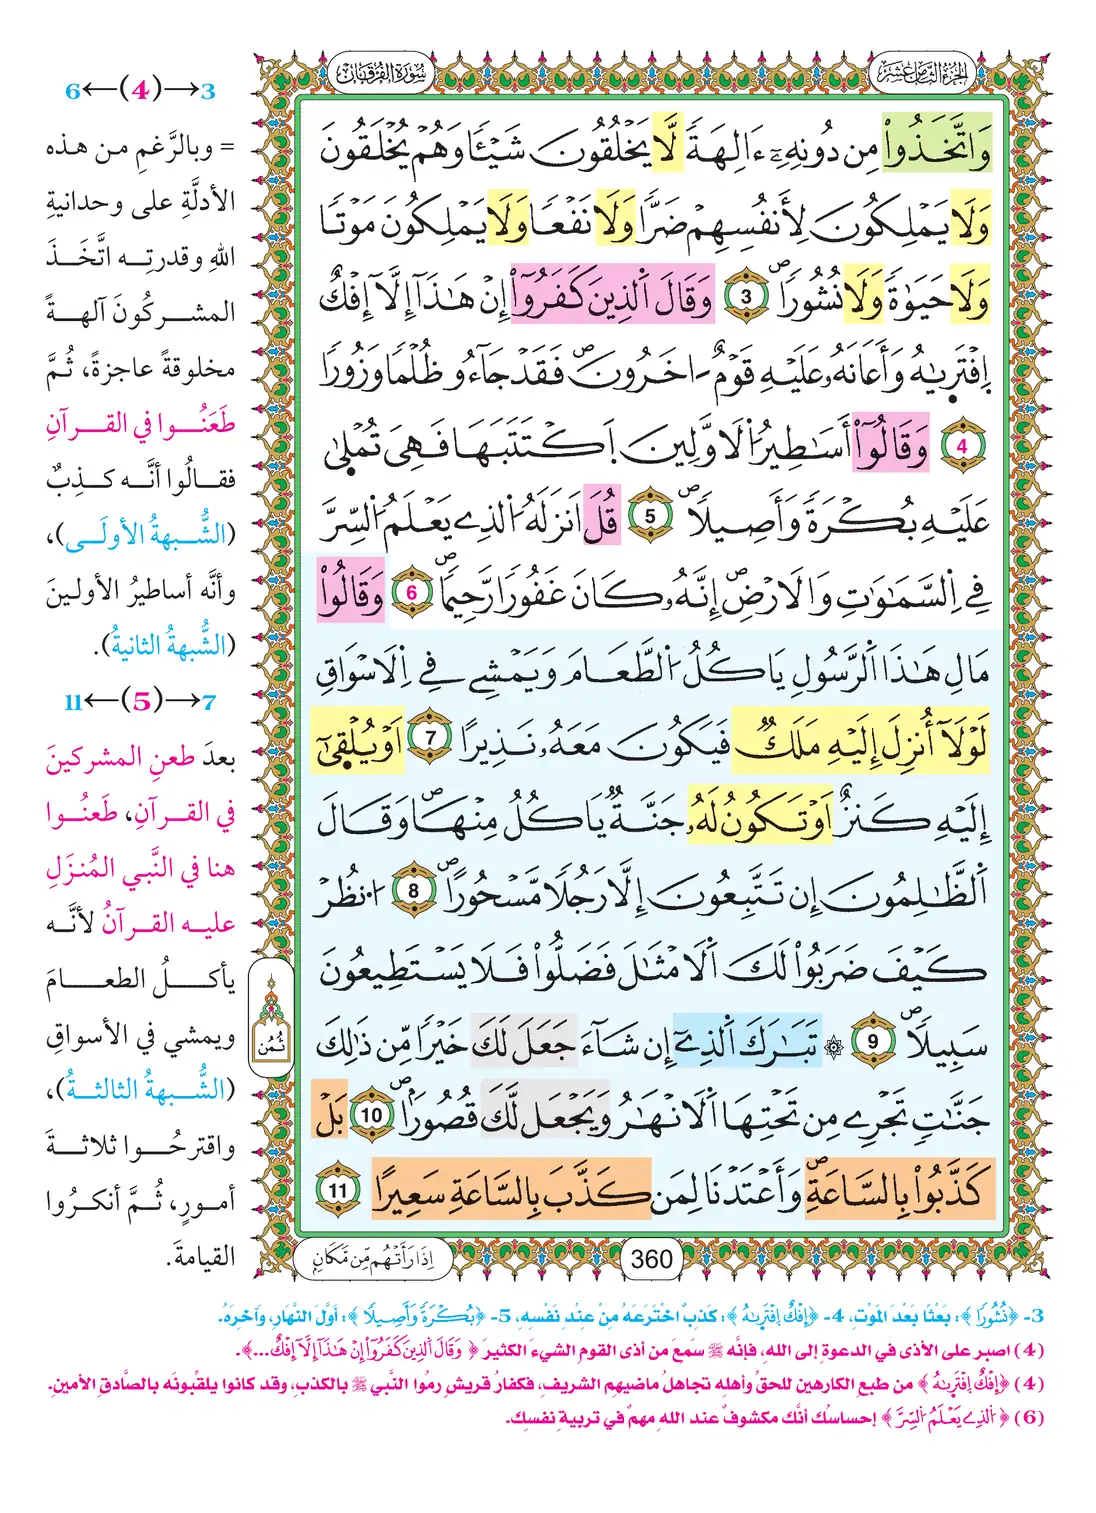 الجزء الثامن عشر
سورة الفرقان
وَاتَّخَذُواْ مِن دُونِهِۦٓ ءَالِهَةٗ لَّا يَخْلُقُونَ شَيْـٔٗا وَهُمْ يُخْلَقُونَ
وَلَا يَمْلِكُونَ لِأَنفُسِهِمْ ضَرّٗا وَلَا نَفْعٗا وَلَا يَمْلِكُونَ مَوْتٗا
وَلَا حَيَوٰةٗ وَلَا نُشُورٗاۖ 3 وَقَالَ اَلذِينَ كَفَرُوٓاْ إِنْ هَٰذَآ إِلَّآ إِفْكٌ
اِفْتَر۪يٰهُ وَأَعَانَهُۥ عَلَيْهِ قَوْمٌ ـ اخَرُونَۖ فَقَدْ جَآءُو ظُلْمٗا وَزُورٗا
4 وَقَالُوٓاْ أَسَٰطِيرُ اُلَاوَّلِينَ اَ۪كْتَتَبَهَا فَهِىَ تُمْل۪يٰ
عَلَيْهِ بُكْرَةٗ وَأَصِيلٗاۖ 5 قُلَ اَنزَلَهُ اُلذِے يَعْلَمُ اُلسِّرَّ
فِے اِلسَّمَٰوَٰتِ وَالَارْضِۖ إِنَّهُۥ كَانَ غَفُورٗا رَّحِيمٗاۖ 6 وَقَالُواْ
مَالِ هَٰذَا اَلرَّسُولِ يَاكُلُ اُلطَّعَامَ وَيَمْشِے فِے اِلَاسْوَاقِ
لَوْلَآ أُنزِلَ إِلَيْهِ مَلَكٌ فَيَكُونَ مَعَهُۥ نَذِيرًا 7 اَوْ يُلْق۪يٰٓ
إِلَيْهِ كَنزٌ اَوْ تَكُونُ لَهُۥ جَنَّةٞ يَاكُلُ مِنْهَاۖ وَقَالَ
اَلظَّٰلِمُونَ إِن تَتَّبِعُونَ إِلَّا رَجُلٗا مَّسْحُورًاۖ 8 اُ۟نظُرْ
كَيْفَ ضَرَبُواْ لَكَ اَلَامْثَٰلَ فَضَلُّواْ فَلَا يَسْتَطِيعُونَ
سَبِيلٗاۖ 9 ۞ تَبَٰرَكَ اَلذِےٓ إِن شَآءَ جَعَلَ لَكَ خَيْرٗا مِّن ذَٰلِكَ
جَنَّٰتٖ تَجْرِے مِن تَحْتِهَا اَلَانْهَٰرُ وَيَجْعَل لَّكَ قُصُورَۢاۖ 10 بَلْ
كَذَّبُواْ بِالسَّاعَةِۖ وَأَعْتَدْنَا لِمَن كَذَّبَ بِالسَّاعَةِ سَعِيرًا 11
ثُمُن
360
اِذَا رَأَتْهُم مِّن مَّكَانِۭ
3→(4)←6
= وبالرَّغمِ من هذه
الأدلَّةِ على وحدانيةِ
اللهِ وقدرتِـه اتَّخَـذَ
المشـركُونَ آلهـةً
مخلوقةً عاجزةً، ثُمَّ
طَعَنُـوا في القـرآنِ
فقـالُوا أنَّـه كـذِبٌ
(الشُّـبهةُ الأولَـى)،
وأنَّه أساطيرُ الأولينَ
(الشُّبهةُ الثانيةُ).
7→(5)←11
بعدَ طعنِ المشركينَ
في القـرآنِ، طَعَنُـوا
هنا في النَّبي المُنزَلِ
عليـه القـرآنُ لأنَّـه
يأكـلُ الطعـامَ
ويمشي في الأسواقِ
(الشُّـبهةُ الثالثـةُ)،
واقترحُـوا ثلاثـةَ
أمـورٍ، ثُـمَّ أنكـرُوا
القيامةَ.
3- ﴿نُشُورًا﴾: بَعْثًا بَعْدَ المَوْتِ، 4- ﴿إِفْكٌ اِفْتَر۪يٰهُ﴾: كَذِبٌ اخْتَرَعَهُ مِنْ عِنْدِ نَفْسِهِ، 5- ﴿بُكْرَةٗ وَأَصِيلًا﴾: أوَّلَ النَّهَارِ، وَآخِرَهُ.
(4) اصبر على الأذى في الدعوةِ إلى اللهِ، فإنَّه ﷺ سَمعَ من أذى القومِ الشيءَ الكثيرَ ﴿وَقَالَ اَلذِينَ كَفَرُوٓاْ إِنْ هَٰذَآ إِلَّآ إِفْكٌ...﴾.
(4) ﴿إِفْكٌ اِفْتَر۪يٰهُ﴾ من طبعِ الكارهين للحقِّ وأهلِه تجاهلُ ماضيهم الشريفِ، فكفارُ قريشٍ رمُوا النَّبي ﷺ بالكذبِ، وقد كانوا يلقِّبونَه بالصَّادقِ الأمينِ.
(6) ﴿اُلذِے يَعْلَمُ اُلسِّرَّ﴾ إحساسُك أنَّك مكشوفٌ عند اللهِ مهمٌ في تربيةِ نفسِك.